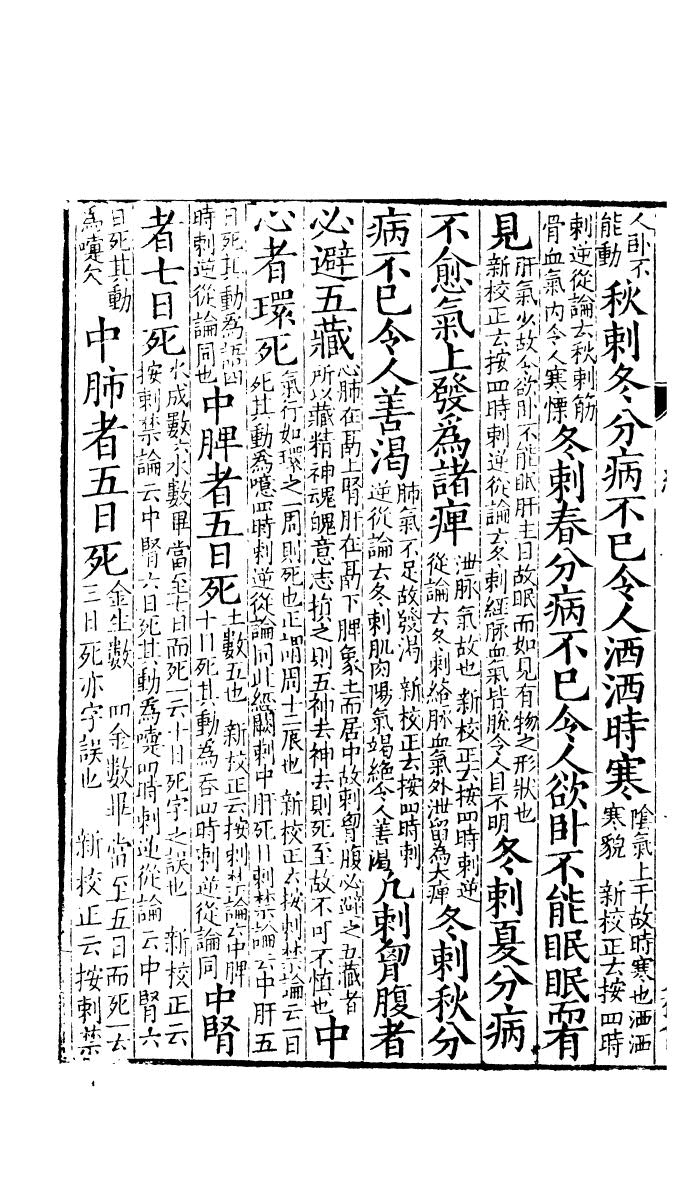 人卧不
能動秋刺冬分病不已令人洒洒時寒陰氣上干故時寒也洒洒
寒貌 新校正云按四時
刺逆從論云秋刺筋
骨血氣内令人寒慄冬刺春分病不已令人欲卧不能眠眠而有
見肝氣少故令欲卧不能眠肝主目故眠而如見有物之形狀也
新校正云按四時刺逆從論云冬刺經脉血氣皆脫令人目不明冬刺夏分病
不愈氣上發爲諸痺泄脉氣故也 新校正云按四時刺逆
從論云冬刺絡脉血氣外泄留為大痺冬刺秋分
病不已令人善渴肺氣不足故發渴 新校正云按四時刺
逆從論云冬刺肌肉陽氣竭絶令人善渴凡刺胷腹者
必避五藏心肺在鬲上腎肝在鬲下脾象土而居中故刺胷腹必避之五藏者
所以藏精神魂魄意志損之則五神去神去則死至故不可不慎也中
心者環死氣行如環之一周則死也正謂周十二辰也 新校正云按刺禁論云一日
死其動為噫四時刺逆從論同此經闕刺中肝死日刺禁論云中肝五
日死其動為語四
時刺逆從論同也中脾者五日死土數五也 新校正云按刺禁論云中脾
十日死其動為吞四時刺逆從論同中腎
者七日死水成數六水數畢當至七日而死一云十日死字之誤也 新校正云
按刺禁論云中腎六日死其動為嚏四時刺逆從論云中腎六
日死其動
為嚏欠中肺者五日死金生數四金數畢當至五日而死一云
三日死亦字誤也 新校正云按刺禁